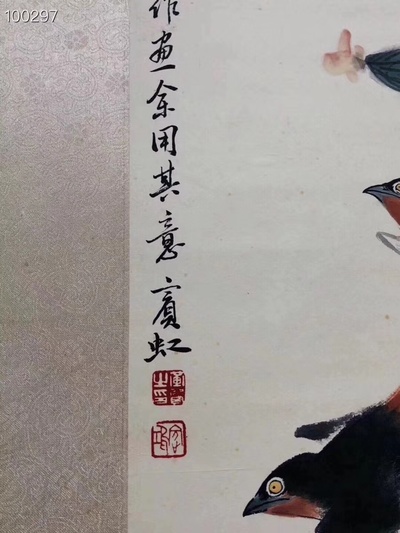 100297
作画余用其意宾虹